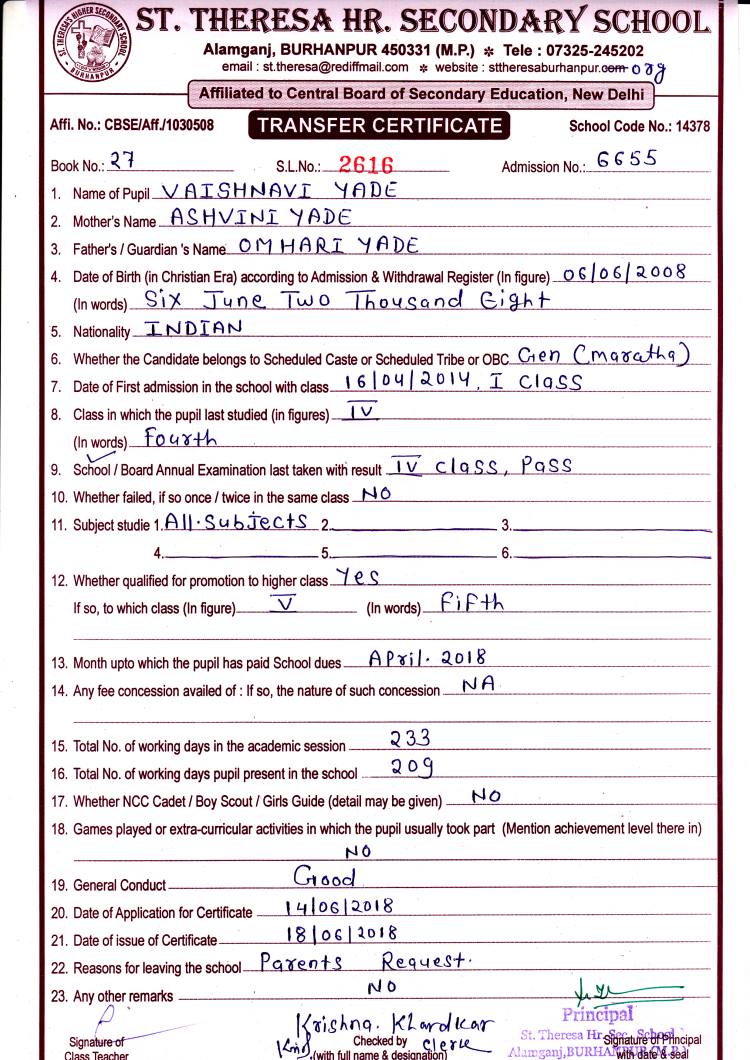 ST. THERESA HR. SECONDARY SCHOOL
Alamganj, BURHANPUR 450331 (M.P.) ✻ Tele : 07325-245202
email : st.theresa@rediffmail.com ✻ website : sttheresaburhanpur.com org
Affiliated to Central Board of Secondary Education, New Delhi
Affi. No.: CBSE/Aff./1030508 TRANSFER CERTIFICATE School Code No.: 14378
Book No.: 27 S.L.No.: 2616 Admission No.: 6655
1. Name of Pupil VAISHNAVI YADE
2. Mother's Name ASHVINI YADE
3. Father's / Guardian 's Name OMHARI YADE
4. Date of Birth (in Christian Era) according to Admission & Withdrawal Register (In figure) 06/06/2008
(In words) Six June Two Thousand Eight
5. Nationality INDIAN
6. Whether the Candidate belongs to Scheduled Caste or Scheduled Tribe or OBC Gen (maratha)
7. Date of First admission in the school with class 16/04/2014, I Class
8. Class in which the pupil last studied (in figures) IV
(In words) Fourth
9. School / Board Annual Examination last taken with result IV Class, Pass
10. Whether failed, if so once / twice in the same class NO
11. Subject studie 1. All.Subjects 2. 3.
4. 5. 6.
12. Whether qualified for promotion to higher class Yes
If so, to which class (In figure) V (In words) Fifth
13. Month upto which the pupil has paid School dues April. 2018
14. Any fee concession availed of : If so, the nature of such concession NA
15. Total No. of working days in the academic session 233
16. Total No. of working days pupil present in the school 209
17. Whether NCC Cadet / Boy Scout / Girls Guide (detail may be given) NO
18. Games played or extra-curricular activities in which the pupil usually took part (Mention achievement level there in)
NO
19. General Conduct Good
20. Date of Application for Certificate 14/06/2018
21. Date of issue of Certificate 18/06/2018
22. Reasons for leaving the school Parents Request.
23. Any other remarks NO
Principal
Krishna. Khardkar
St. Theresa Hr. Sec. School
Signature of Checked by Clerk Signature of Principal
Alamganj, BURHANPUR (M.P.)
Class Teacher (with full name & designation) with date & seal